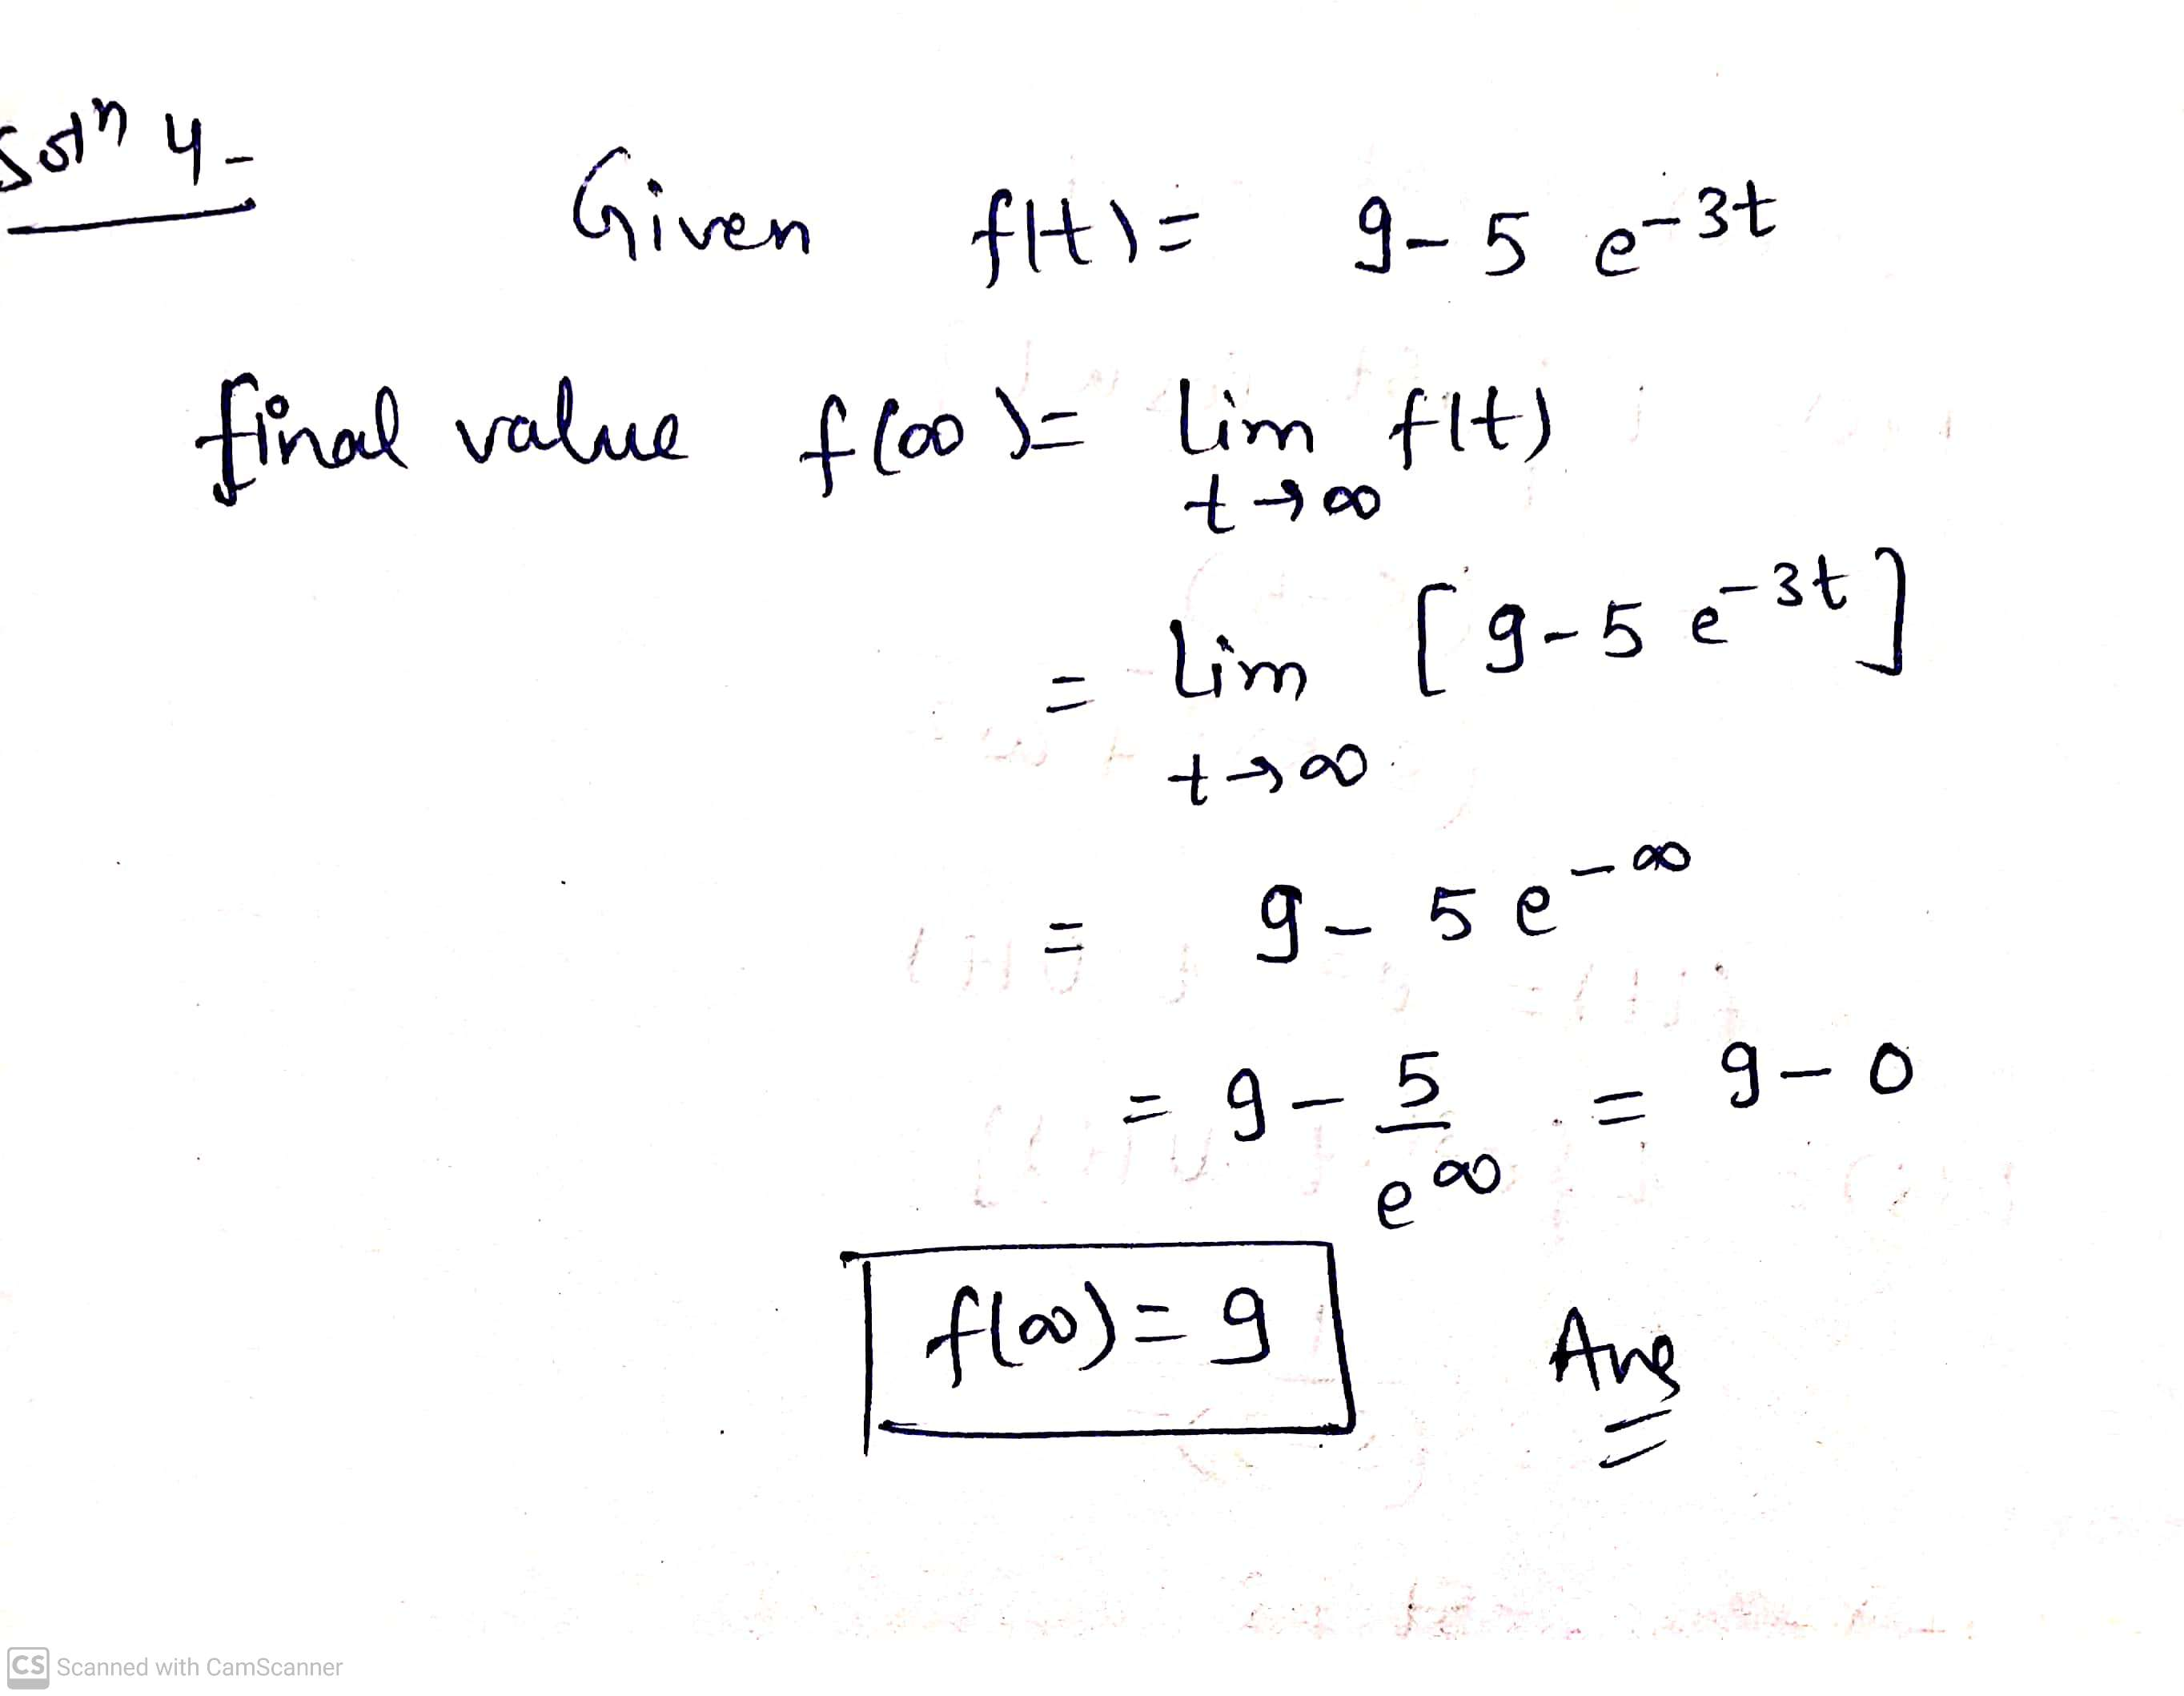 Solⁿ 4-
Given f(t) = 9 - 5 e^{-3t}
final value f(∞) = lim f(t)
t→∞
= lim [9 - 5 e^{-3t}]
t→∞
= 9 - 5 e^{-∞}
= 9 - 5/e^{∞} = 9 - 0
f(∞) = 9 Ans
CS Scanned with CamScanner